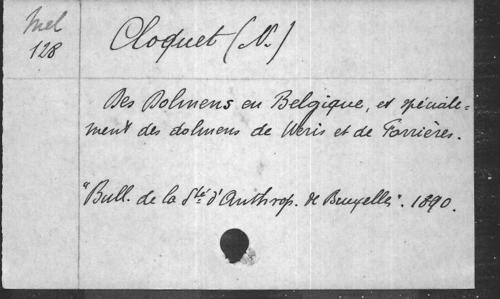 Mel
128
Cloquet (N.)
Des Dolmens en Belgique, et spéciale-
ment des dolmens de Weris et de Forrières.
"Bull. de la Sté d'Anthrop. de Bruxelles". 1890.